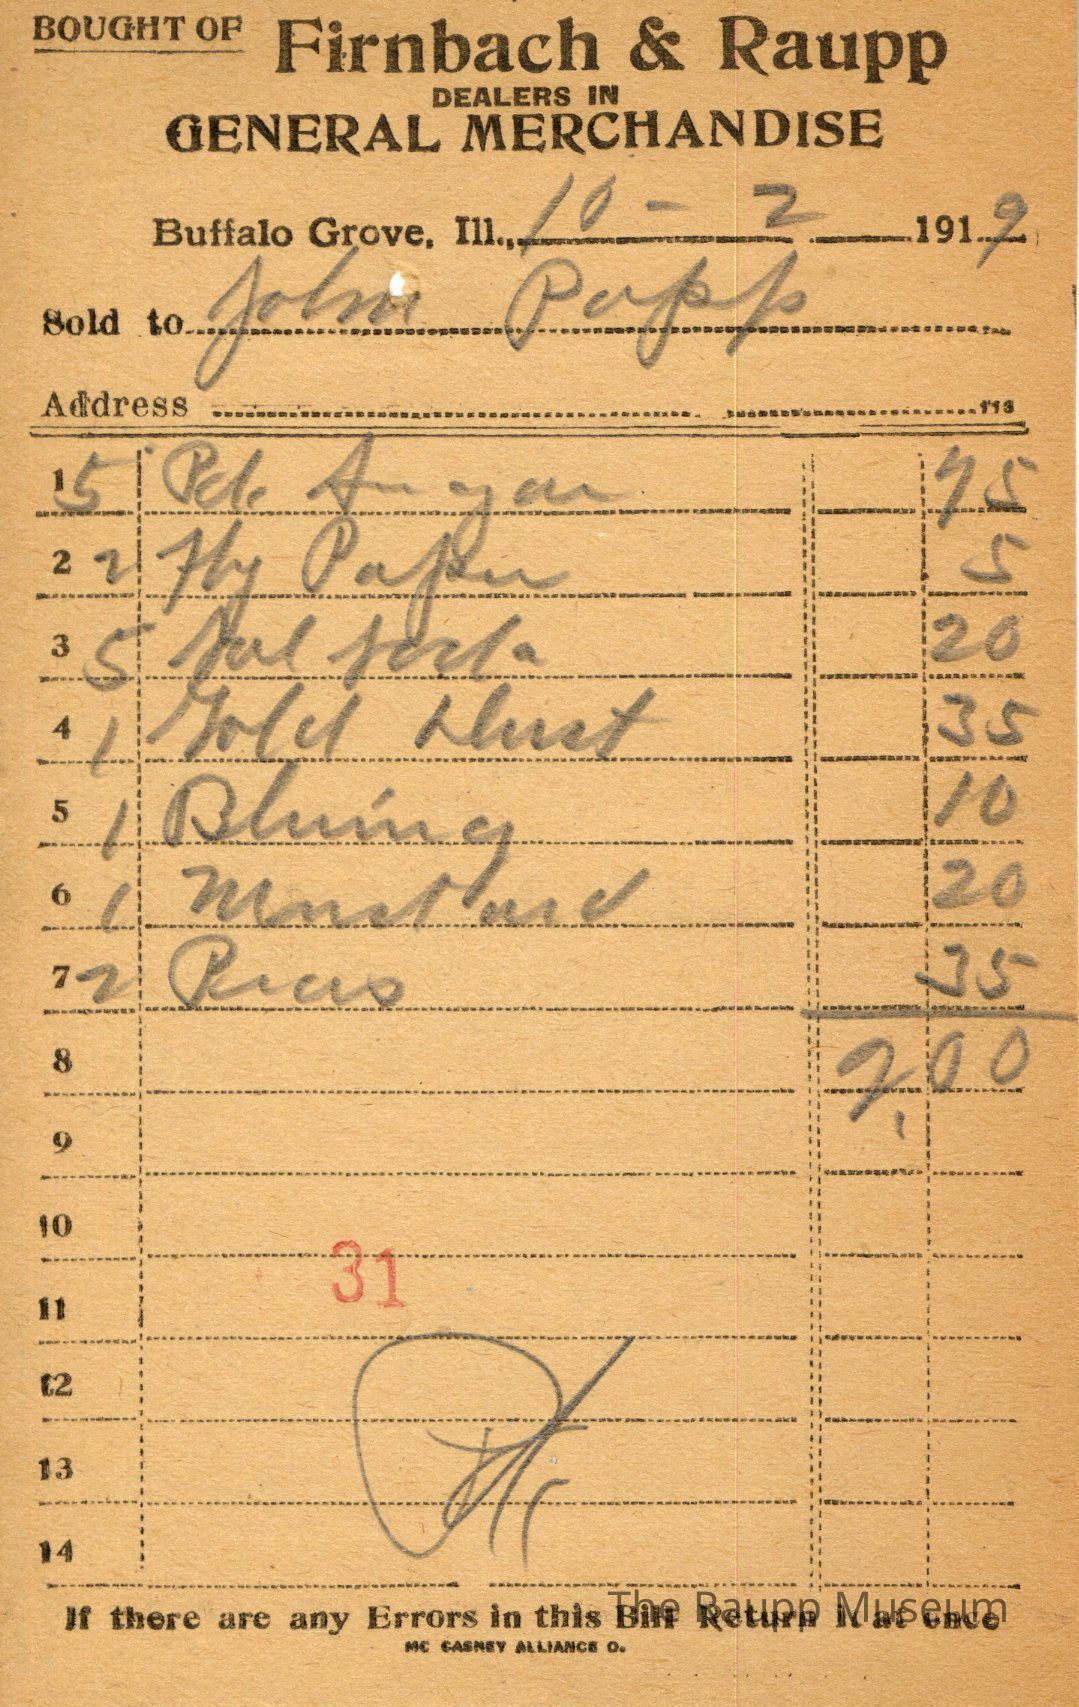 BOUGHT OF Firnbach & Raupp
DEALERS IN
GENERAL MERCHANDISE
Buffalo Grove, Ill., 10 - 2 1919
Sold to John Popp
Address 113
1 5 Sugar 75
2 2 Fly Paper 5
3 5 Sal Soda 20
4 1 Gold Dust 35
5 1 Bluing 10
6 1 Mustard 20
7 2 35
8 2,00
9
10
31
11
12
13
14
If there are any Errors in this Bill Return it at once
The Raupp Museum
MC CASKEY ALLIANCE O.